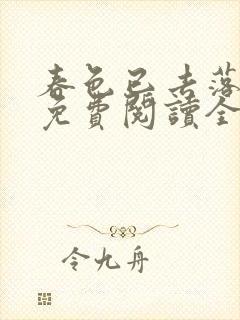 春色已去落
免費閱讀全
令九舟